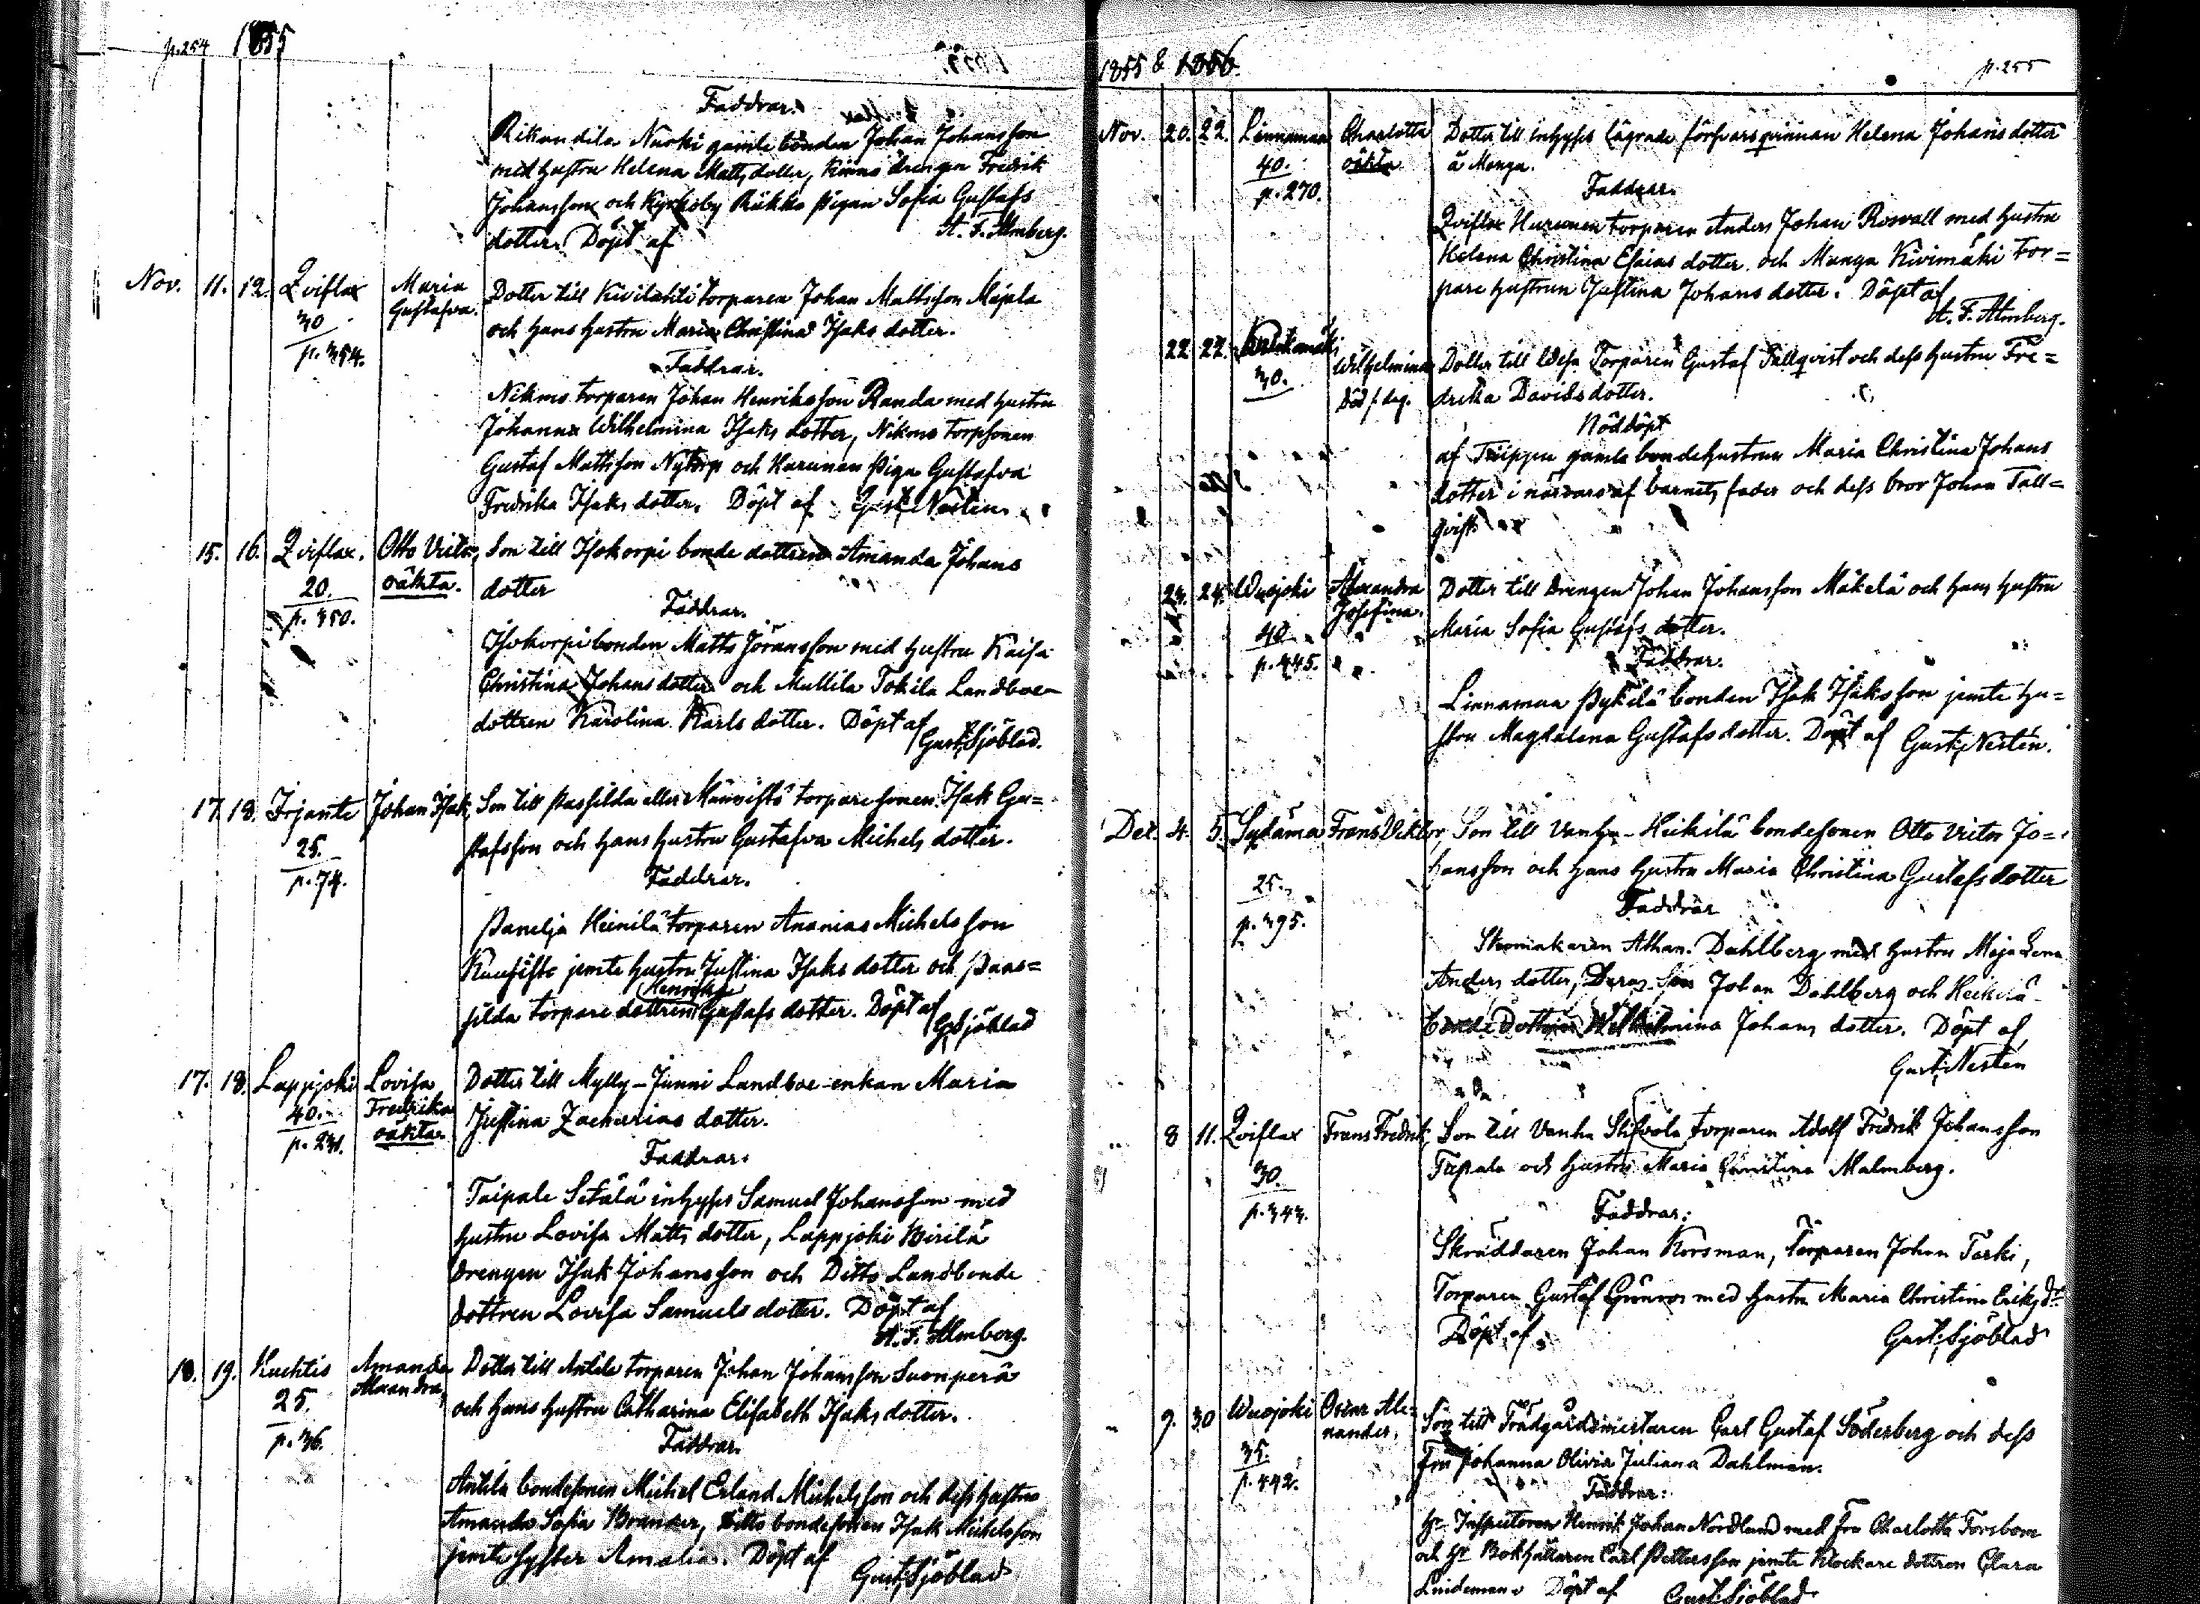 p. 254 1855
Faddrar.
Rikandila Nurki gamle bonden Johan Johansson
med hustru Helena Matts dotter, Kinno drengen Fredrik
Johansson och Kyrkoby Rukko pigan Sofia Gustafs
dotter. Döpt af A. F. Almberg.
Nov. 11. 12. Qviflax Maria Dotter till Kivilahti torparen Johan Mattsson Majala
30 Gustafva. och hans hustru Maria Christina Isaks dotter.
p. 354. Faddrar.
Nikmo torparen Johan Henriksson Randa med hustru
Johanna Wilhelmina Isaks dotter, Nikmo torpsonen
Gustaf Mattsson Nytorp och Harunen pigan Gustafva
Fredrika Isaks dotter. Döpt af Gust. Nestén.
15. 16. Qviflax. Otto Victor, Son till Isokorpi bonde dottren Amanda Johans
20. oäkta. dotter
p. 350. Faddrar.
Isokorpi bonden Matts Jöransson med hustru Kaisa
Christina Johans dotter och Mullila Tokila Landboe-
dottren Karolina Karls dotter. Döpt af
Gust. Sjöblad.
17. 18. Irjante Johan Isak, Son till Passilda eller torparesonen Isak Gu=
25. stafsson och hans hustru Gustafva Michels dotter.
p. 74. Faddrar.
Panelja Heinilä torparen Ananias Michelsson
jemte hustru Justina Isaks dotter och Pass=
Henrika
silda torpare dottren Gustafs dotter. Döpt af
G. Sjöblad
17. 18. Lappjoki Lovisa Dotter till Mylly-Junni Landboe-enkan Maria
40. Fredrika Justina Zacharias dotter.
p. 231. oäkta. Faddrar.
Taipale Setälä inhyses Samuel Johansson med
hustru Lovisa Matts dotter, Lappjoki Birilä
drengen Isak Johansson och Ditto Landbonde
dottren Lovisa Samuels dotter. Döpt af
A. F. Almberg.
18. 19. Kuchtis Amanda Dotter till Anttila torparen Johan Johansson Suonperä
25. Alexandra, och hans hustru Catharina Elisabeth Isaks dotter.
p. 36. Faddrar.
Anttila bondesonen Michel Erland Michelsson och dess hustru
Amanda Sofia Brander, ditto bondesonen Isak Michelsson
jemte syster Amalia. Döpt af
Gust. Sjöblad
1855 & 1856. p. 255
Nov. 20. 22. Linnamaa Charlotta Dotter till inhyses lägrade försvarsqvinnan Helena Johans dotter
40. oäkta å Manga.
p. 270. Faddrar.
Qviflax Harunen torparen Anders Johan Roswall med hustru
Helena Christina Esaias dotter och Manga Kivimäki tor=
pare hustrun Justina Johans dotter. Döpt af
A. F. Almberg.
22 22. Wilhelmina Dotter till Torparen Gustaf Tallqvist och dess hustru Fre=
30. Död s. dag. drika Davids dotter.
Nöddöpt
af Trüppu gamla bondehustrun Maria Christina Johans
dotter i närvaro af barnets fader och dess bror Johan Tall=
qvist.
23. 24. Wuojoki Alexandra Dotter till Drengen Johan Johansson Mäkelä och hans hustru
40. Josefina. Maria Sofia Gustafs dotter.
p. 445. Faddrar.
Linnamaa Pykälä bonden Isak Isaksson jemte hu=
stru Magdalena Gustafs dotter. Döpt af Gust. Nestén.
Dec. 4. 5. Sydänmaa Frans Victor, Son till Vanha-Heikilä bondesonen Otto Victor Jo=
hansson och hans hustru Maria Christina Gustafs dotter
25. Faddrar
p. 395. Skomakaren Athan. Dahlberg med hustru Maja Lena
Anders dotter, Deras Son Johan Dahlberg och Heikilä
bonde Dottren Wilhelmina Johans dotter. Döpt af
Gust. Nestén
8 11. Qviflax Frans Fredrik, Son till Vanha torparen Adolf Fredrik Johansson
30. och hustru Maria Christina Malmberg.
p. 343. Faddrar:
Skräddaren Johan Korsman, Torparen Johan Tarki,
Torparen Gustaf Grönroos med hustru Maria Christina Eriks dr.
Döpt af Gust. Sjöblad
9. 30 Wuojoki Oscar Ale= Son till Trädgårdsmästaren Carl Gustaf Söderberg och dess
35. xander, Fru Johanna Olivia Juliana Dahlman.
p. 442. Faddrar:
Hr Inspectoren Henrik Johan Nordlund med Fru Charlotta Forsbom
och Hr Bokhållaren Carl Pettersson jemte Klockare dottren Clara
Lindeman. Döpt af Gust. Sjöblad.